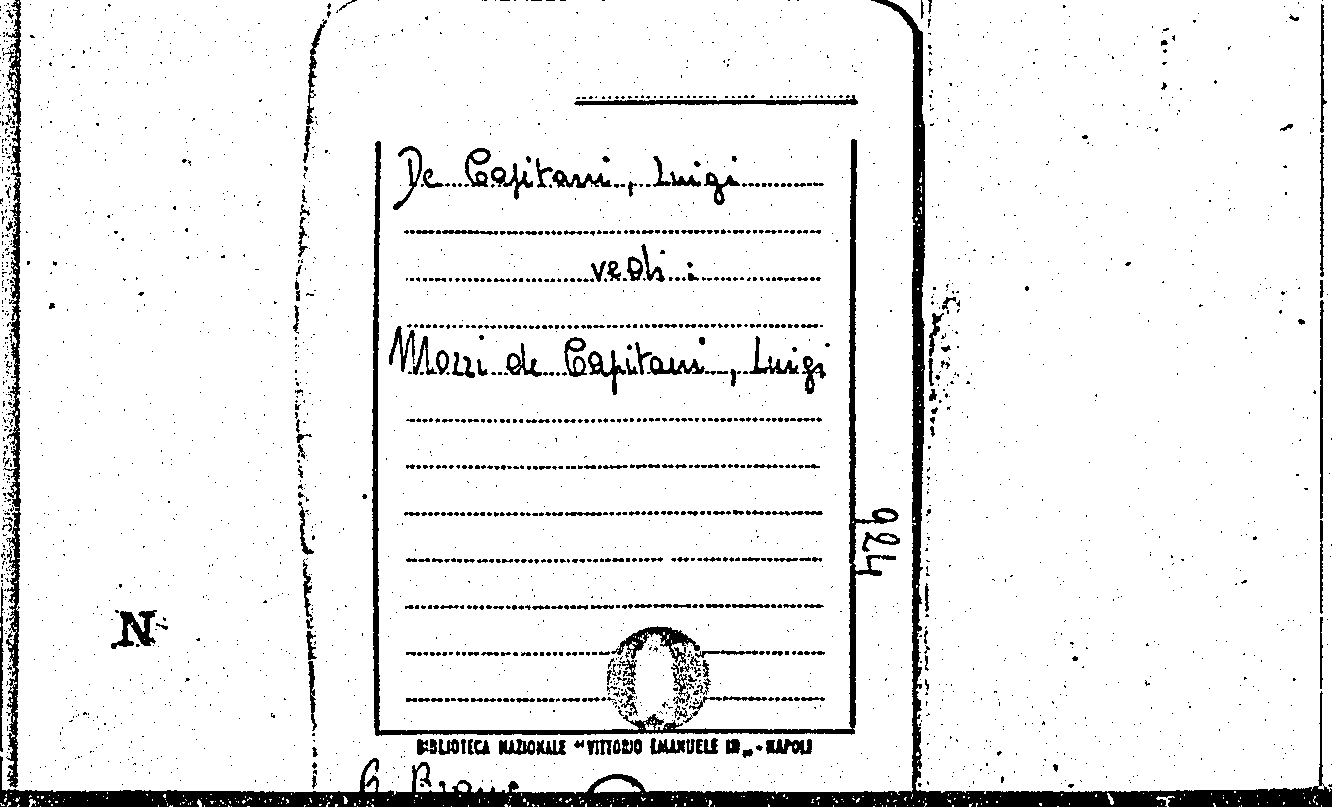 De Capitani, Luigi
vedi:
Mozzi de Capitani, Luigi
924
N
BIBLIOTECA NAZIONALE "VITTORIO EMANUELE III" - NAPOLI